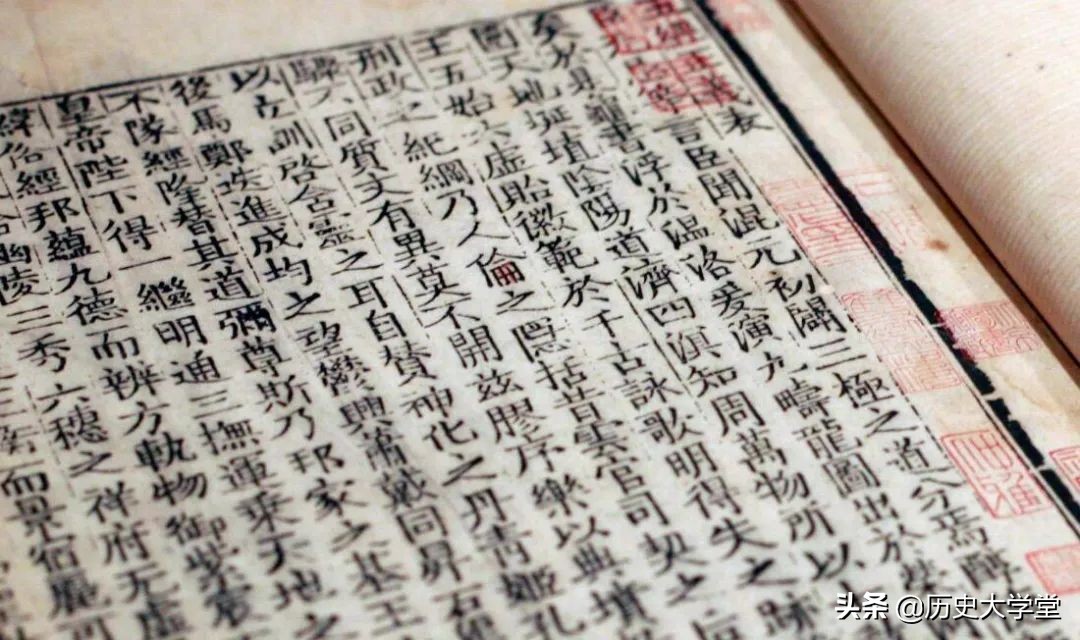 五經正義表
等言臣聞混元初闢三極之道分焉醇
矣於是龜書浮於温洛爰演九疇龍圖出於榮
圍天地埏埴陰陽道濟四溟知周萬物所以
王五始六虛貽徽範於千古詠歌明得失之跡
刑政之紀綱乃人倫之隱括昔雲官司契之后
驟不同質文有異莫不開茲膠序樂以典墳
以立訓啓含靈之耳目贊神化之丹青姬孔
後馬鄭迭進成均之望鬱興蕭戴同昇石
不墜經隆替其道彌尊斯乃邦家之基王
皇帝陛下得一繼明通三撫運乘天地之
緯俗經邦蘊九德而辨方軌物御紫宸
洽幽陵三秀六穗之祥府無虛
衡而景宿麗可
头条 @历史大学堂